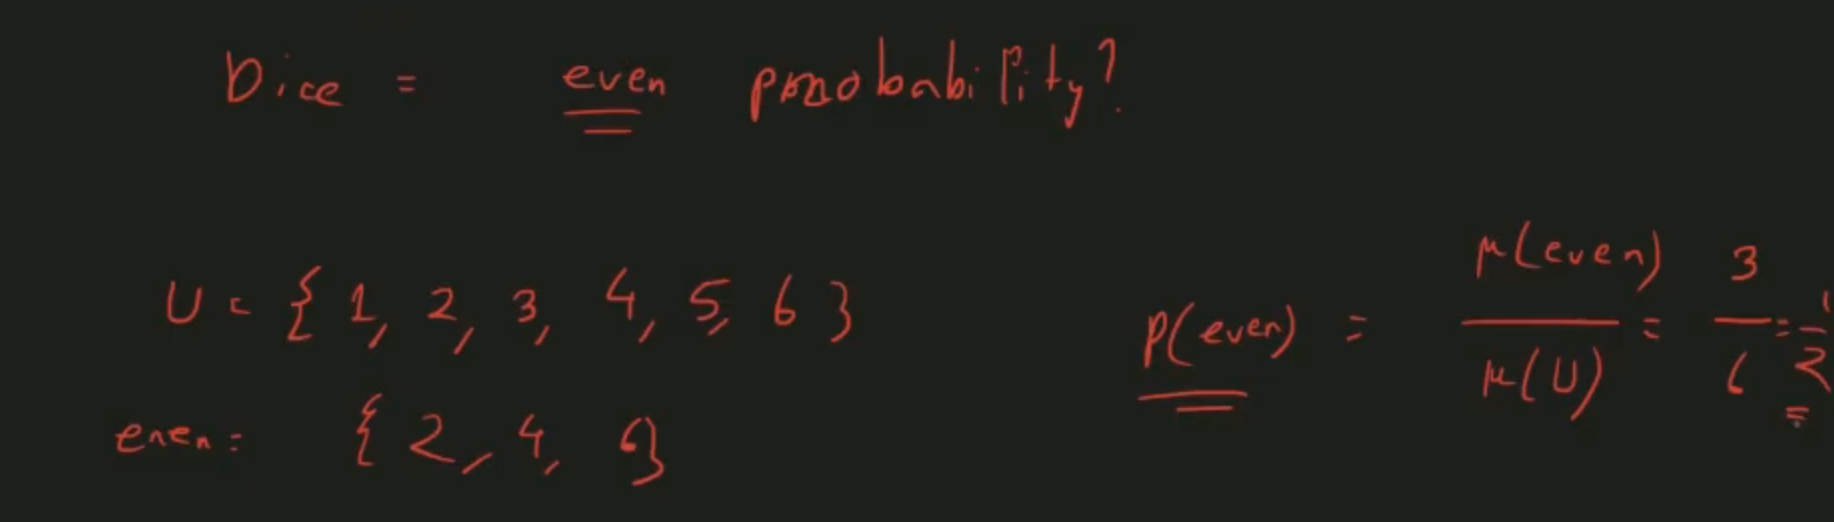 Dice = even probability?
U = { 1, 2, 3, 4, 5, 6 }
even = { 2, 4, 6}
P(even) = μ(even) / μ(U) = 3 / 6 = 1 / 2